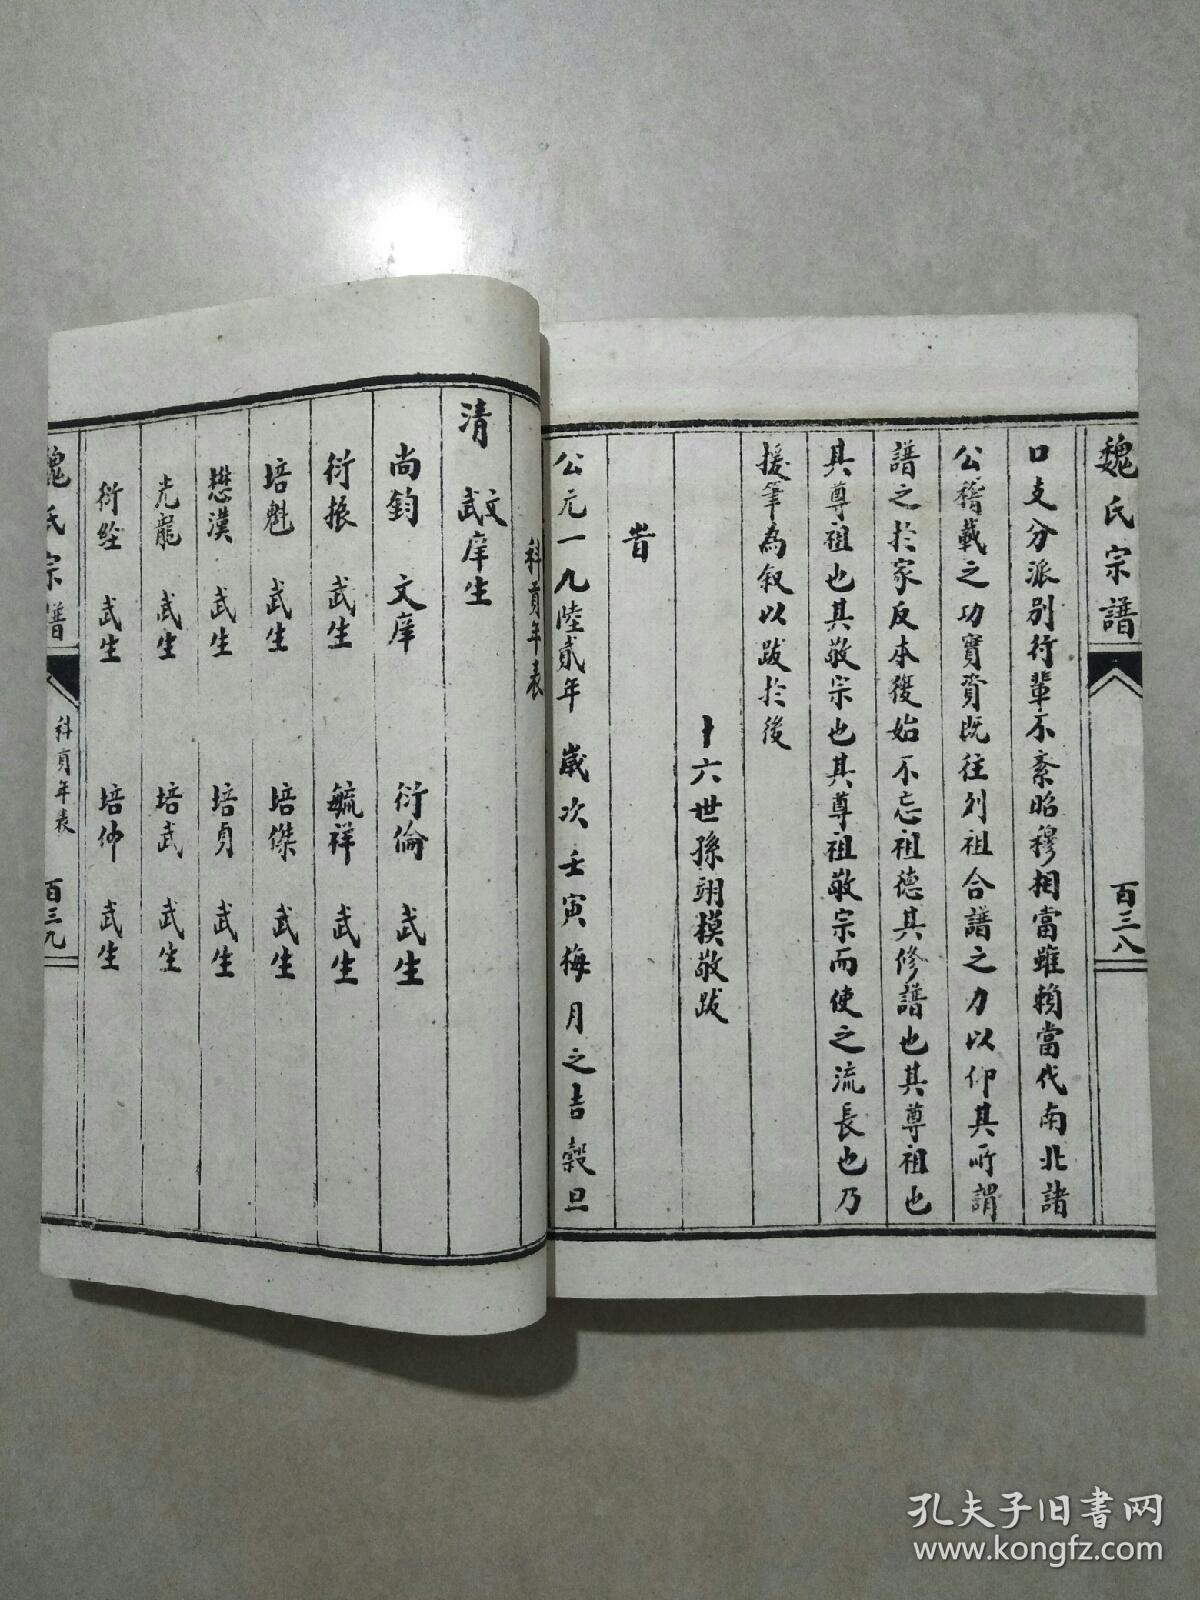 魏氏宗譜
百三八
口支分派別行輩不紊昭穆相當雖賴當代南北諸
公稽載之功實資既往列祖合譜之力以仰其所謂
譜之於家反本後始不忘祖德其修譜也其尊祖也
其尊祖也其敬宗也其尊祖敬宗而使之流長也乃
援筆為叙以跋於後
十六世孫翊模敬跋
旹
公元一九陸貳年 歲次壬寅梅月之吉穀旦
科貢年表
清 文武庠生
尚鈞 文庠 衍倫 武生
衍振 武生 毓祥 武生
培魁 武生 培傑 武生
懋漢 武生 培貞 武生
光龍 武生 培武 武生
衍經 武生 培仲 武生
魏氏宗譜
科貢年表
百三九
孔夫子旧书网
www.kongfz.com